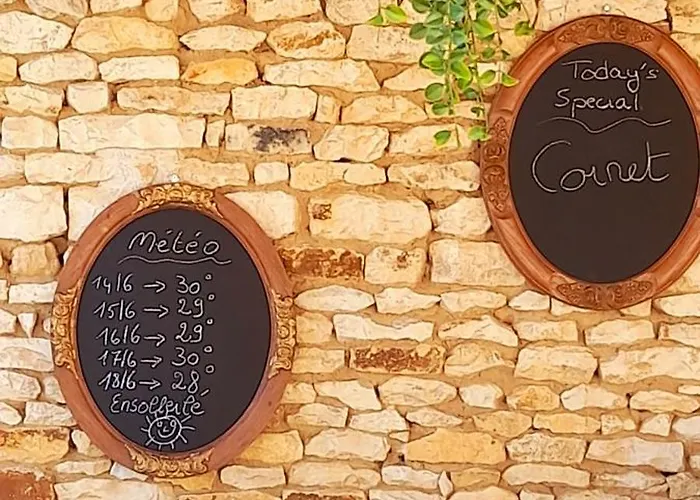 Météo
14/6 → 30°
15/6 → 29°
16/6 → 29°
17/6 → 30°
18/6 → 28°
Ensolleilé
Today's
Special
Cornet